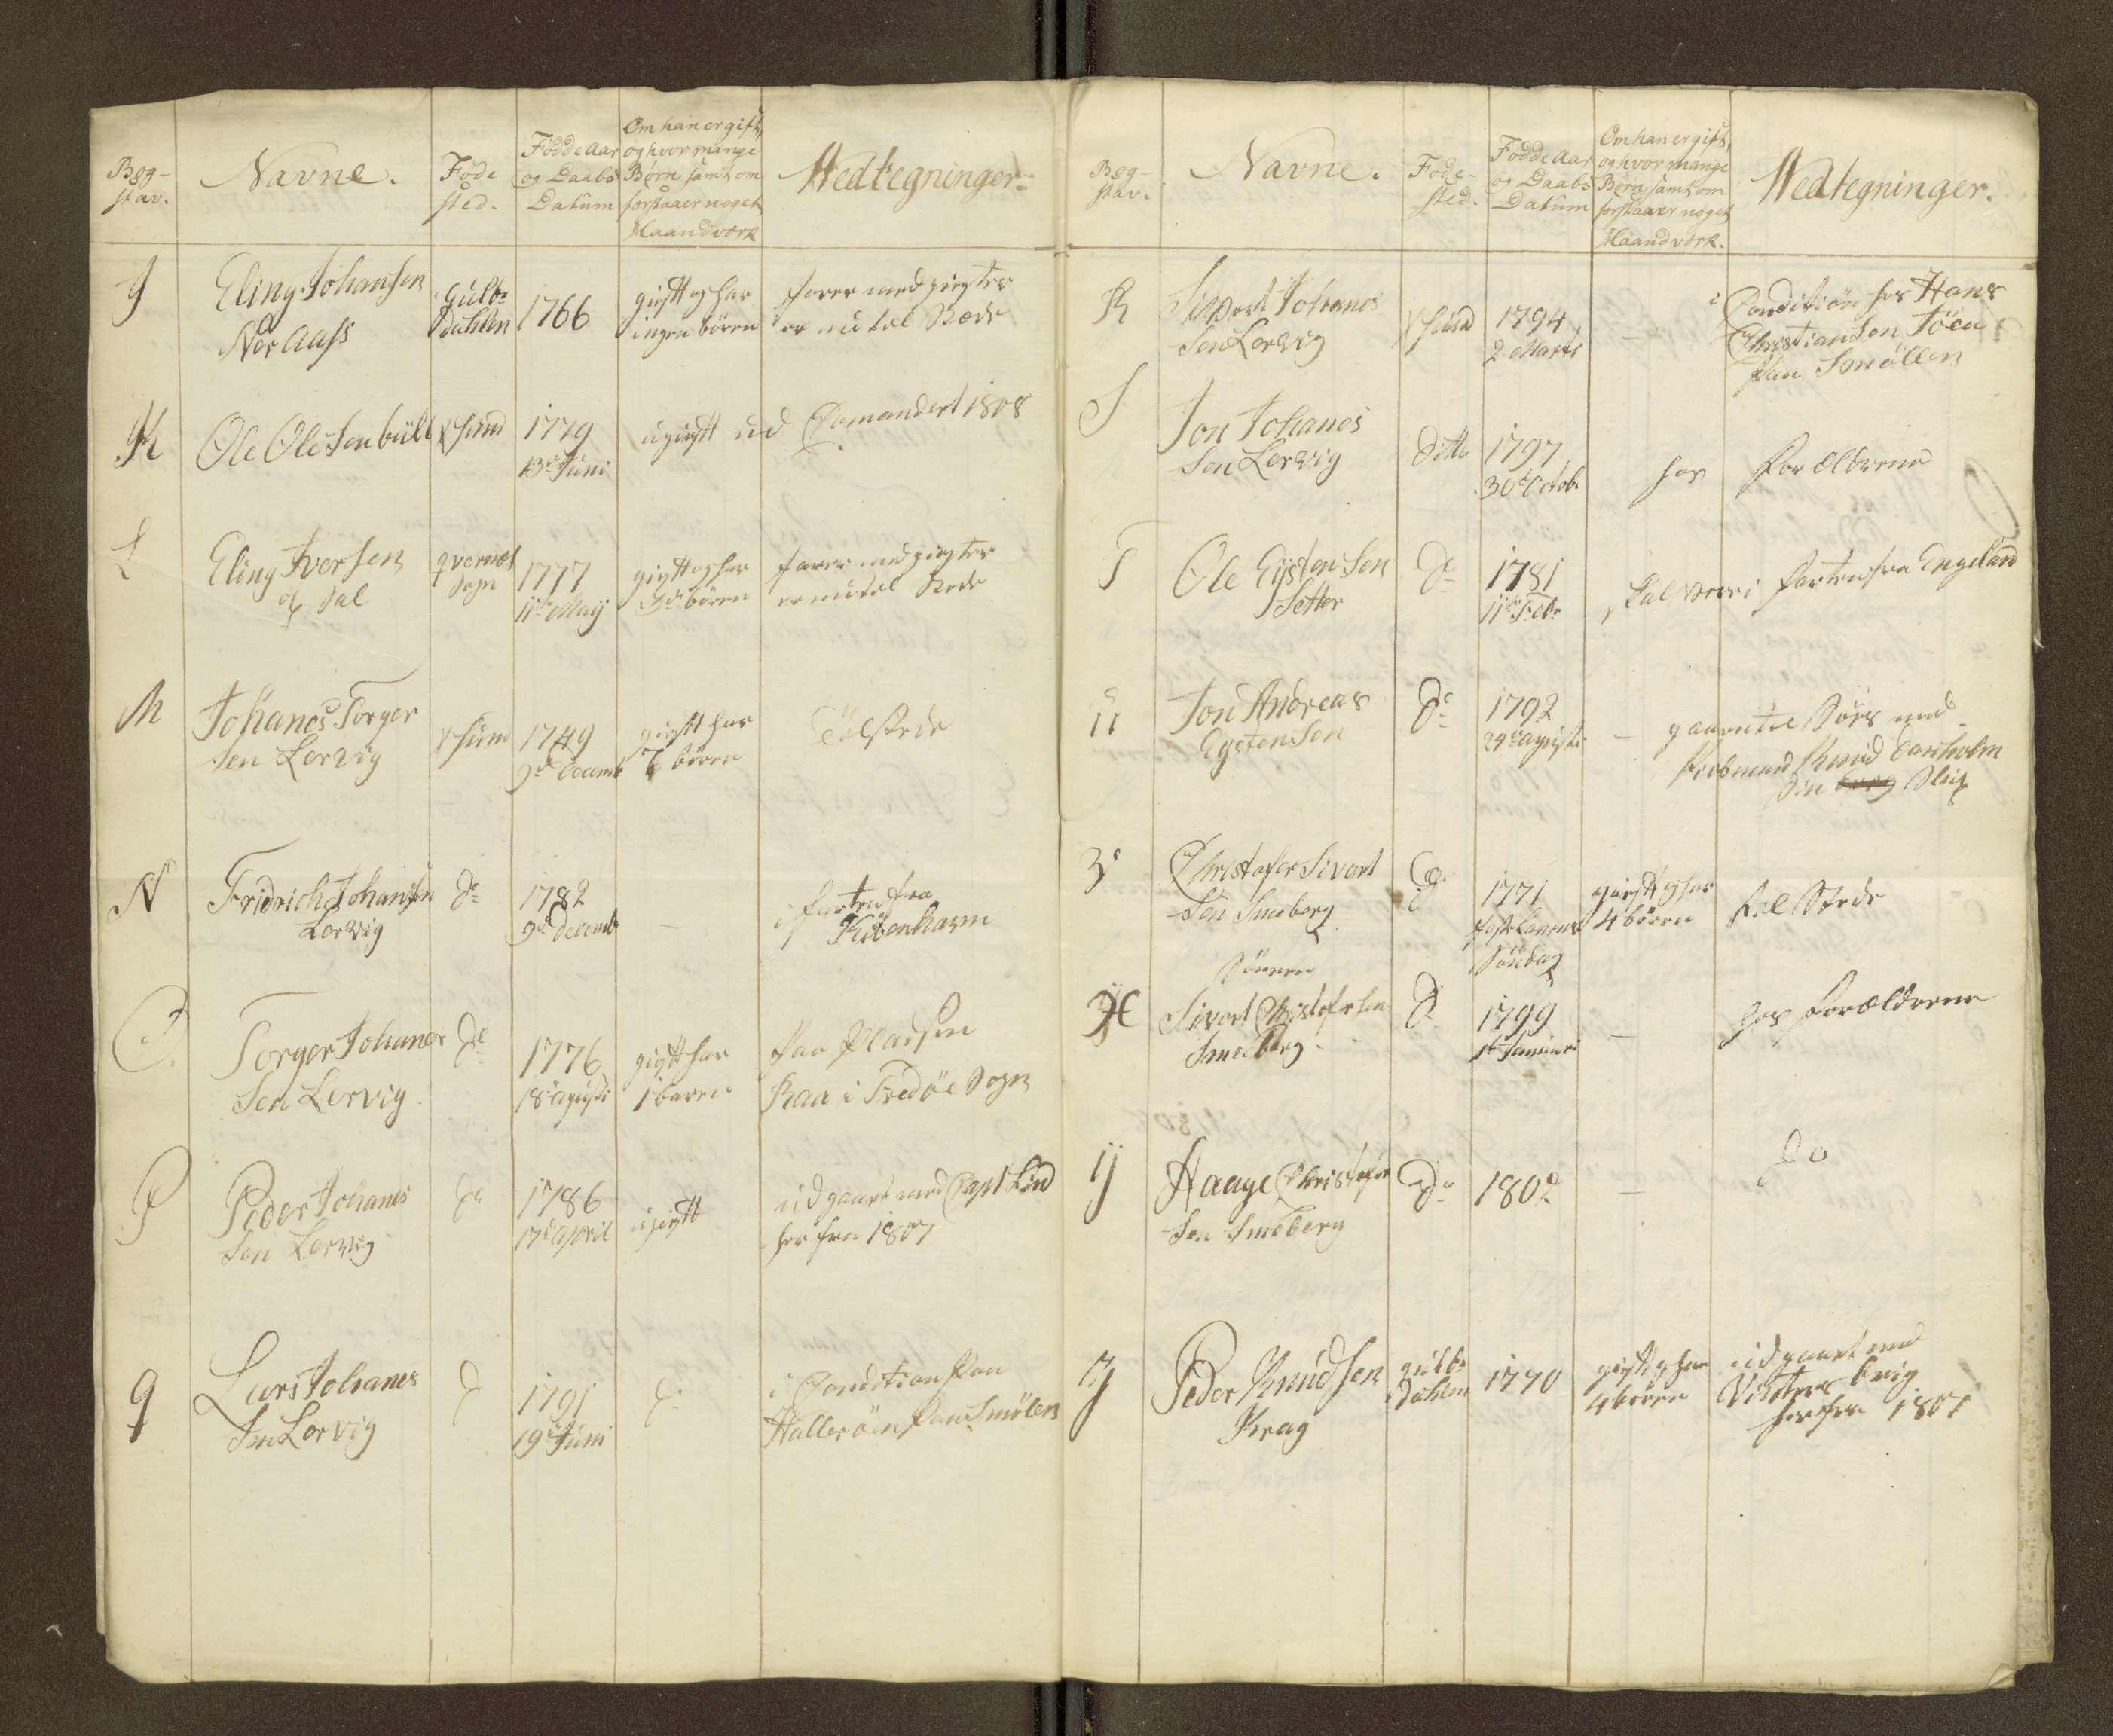 Bog-
stav.
Navne.
Föde
sted.
Födde Aar
og Daabs
Datum
Om han er gift,
og hvor mange
Börn samt om
forstaaer noget
Haandværk
Vedtegninger.
J
Eling Johansen
Nor Aass
Gulb:
dahlen
1766
giftt og har
ingen bören
farer med jregter
er nu tel Stede
K
Ole Olesen bült
X sund
1779
13de Juni
ugiftt
ud Comandert 1808
L
Eling Iversen
Dal
qvernes
Sogn
1777
11te Maij
giftt og har
3de bören
farer med jregter
er nu tel Stede
M
Johanes Torger
sen Lervig
X sund
1749
9de Decemb
giftt har
7 bören
Tilstede
N
Fridrich Johansen
Lervig
do
1782
9de Decemb
-
i farten fra
Kibenhavn
O
Torger Johanes
sen Lervig
do
1776
18 agusti
giftt har
1 baren
paa Pladsen
Kaa i Tredöe Sogn
P
Peder Johanes
sen Lervig
do
1786
17de April
ugiftt
udgaaet med Capt Lind
her fra 1807
q
Lars Johanes
sen Lervig
do
1791
19de Juni
do
i Condition paa
Halleröen paa Smölen
Bog-
stav.
Navne.
Föde-
sted.
Födde Aar
og Daabs
Datum
Om han er gift,
og hvor mange
Börn samt om
forstaaer noget
Haandværk.
Vedtegninger.
R
Sivert Johanes
sen Lervig
X sund
1794
2 Marti
-
i Condition hos Hans
Christiansen Töen
paa Smölen
S
Jon Johanes
sen Lervig
ditto
1797
30te Octob:
hos
Forældrene
T
Ole Eystensen
Setter
do
1781
11te Feb:
skal være i farten fra Engeland
U
Jon Andreas
Eystensen
do
1792
29de agusti
-
gaaen til Söes med
Kiöbmand Knud Danholm
Slup
3
Christofer Sivert
sen Smeberg
do
1771
Söndag
giftt og har
4 bören
tel Stede
X
Sönnen
Sivert Christofersen
Smeberg
do
1799
1te Januari
-
hos forældrene
ij
Haage Christofer
sen Smeberg
do
1802
-
do
Peder Knudsen
Krag
gulb:
dahlen
1770
giftt og har
4 bören
udgaaet med
brig
her fra 1807